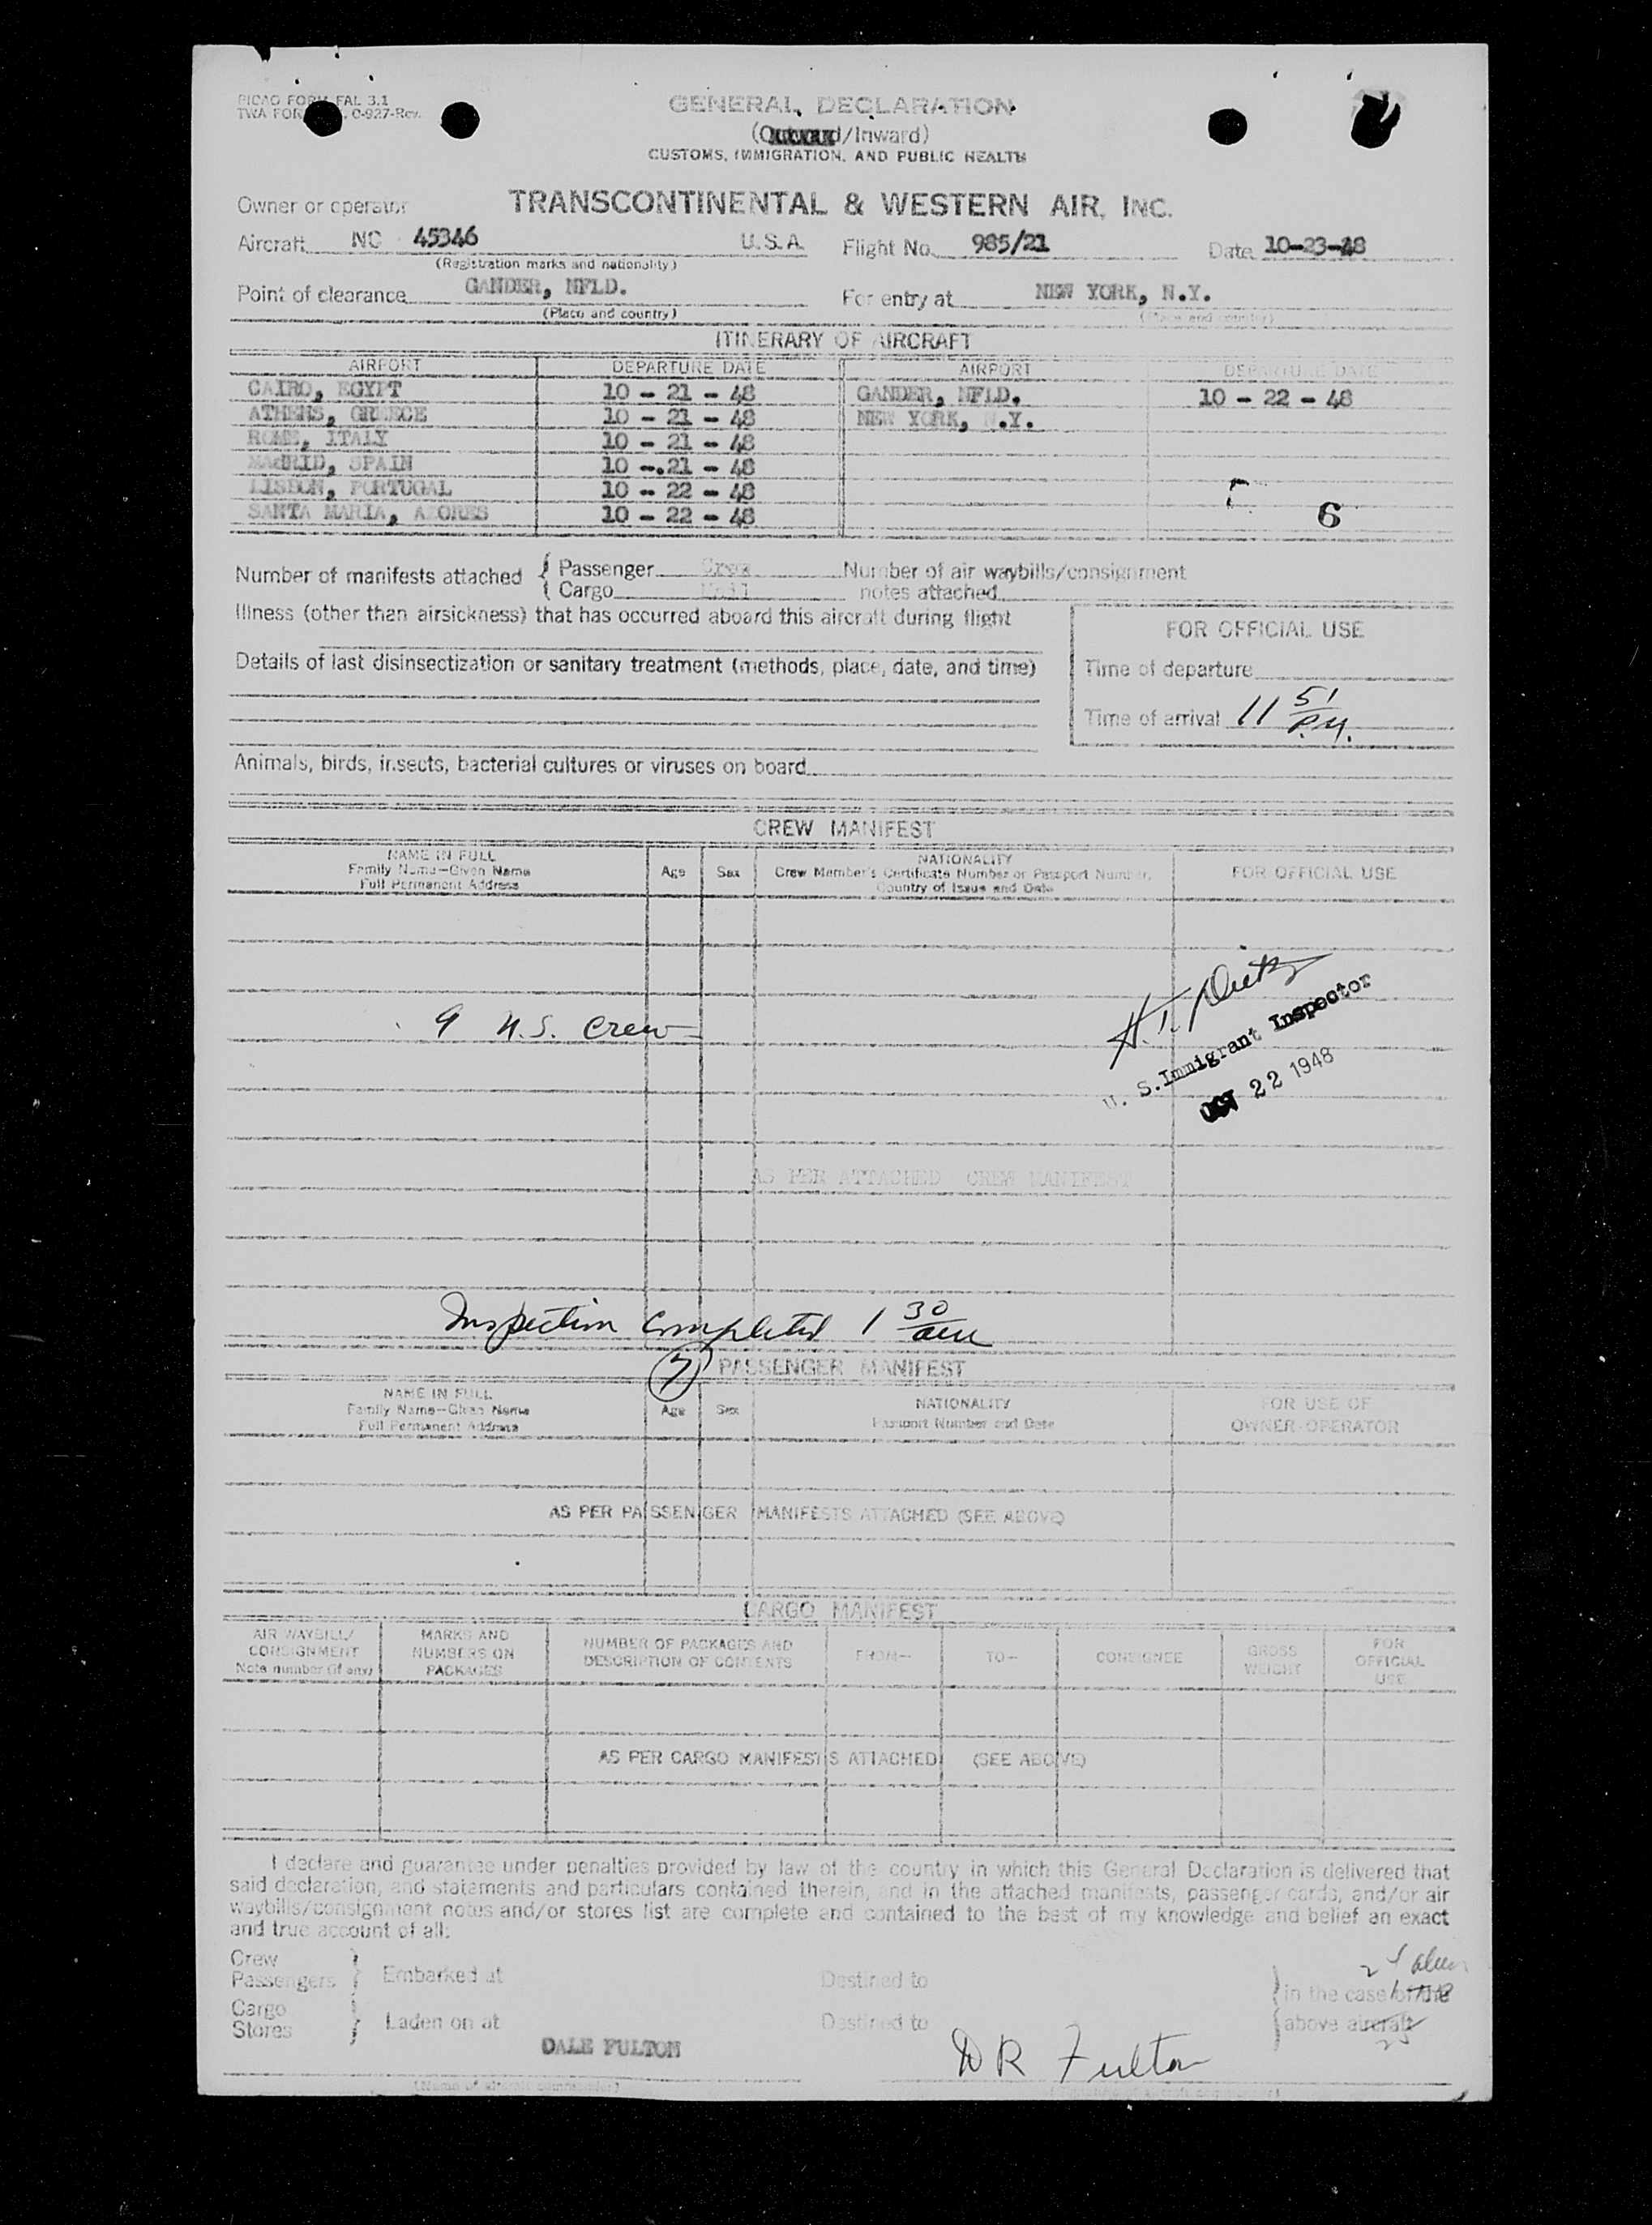 PICAO FORM FAL 3.1
TWA FOR C-927-Rev.
GENERAL DECLARATION
(Outward/Inward)
CUSTOMS, IMMIGRATION, AND PUBLIC HEALTH
Owner or operator TRANSCONTINENTAL & WESTERN AIR, INC.
Aircraft NC 45346 U.S.A. Flight No. 985/21 Date 10-23-48
(Registration marks and nationality)
Point of clearance GANDER, NFLD. For entry at NEW YORK, N.Y.
(Place and country) (Place and country)
ITINERARY OF AIRCRAFT
AIRPORT DEPARTURE DATE AIRPORT DEPARTURE DATE
CAIRO, EGYPT 10 - 21 - 48 GANDER, NFLD. 10 - 22 - 48
ATHENS, GREECE 10 - 21 - 48 NEW YORK, N.Y.
ROME, ITALY 10 - 21 - 48
MADRID, SPAIN 10 -.21 - 48
LISBON, PORTUGAL 10 - 22 - 48
SANTA MARIA, AZORES 10 - 22 - 48
6
Number of manifests attached { Passenger Crew Number of air waybills/consignment
{ Cargo Mail notes attached
Illness (other than airsickness) that has occurred aboard this aircraft during flight
FOR OFFICIAL USE
Details of last disinsectization or sanitary treatment (methods, place, date, and time)
Time of departure
Time of arrival 11 51 P.M.
Animals, birds, insects, bacterial cultures or viruses on board
CREW MANIFEST
NAME IN FULL
Family Name—Given Name
Full Permanent Address
Age Sex
NATIONALITY
Crew Member's Certificate Number or Passport Number,
Country of Issue and Date
FOR OFFICIAL USE
9 U.S. Crew
U. S. Immigrant Inspector
OCT 22 1948
AS PER ATTACHED CREW MANIFEST
Inspection Completed 1 30 am
7 PASSENGER MANIFEST
NAME IN FULL
Family Name—Given Name
Full Permanent Address
Age Sex
NATIONALITY
Passport Number and Date
FOR USE OF
OWNER-OPERATOR
AS PER PASSENGER MANIFESTS ATTACHED (SEE ABOVE)
CARGO MANIFEST
AIR WAYBILL/
CONSIGNMENT
Note number (if any)
MARKS AND
NUMBERS ON
PACKAGES
NUMBER OF PACKAGES AND
DESCRIPTION OF CONTENTS
FROM— TO— CONSIGNEE
GROSS
WEIGHT
FOR
OFFICIAL
USE
AS PER CARGO MANIFESTS ATTACHED (SEE ABOVE)
I declare and guarantee under penalties provided by law of the country in which this General Declaration is delivered that
said declaration, and statements and particulars contained therein, and in the attached manifests, passenger cards, and/or air
waybills/consignment notes and/or stores list are complete and contained to the best of my knowledge and belief an exact
and true account of all:
Crew
Passengers } Embarked at Destined to
Cargo
Stores } Laden on at Destined to
in the case of the
above aircraft
DALE FULTON D R Fulton
(Name of aircraft commander) (Signature of aircraft commander)